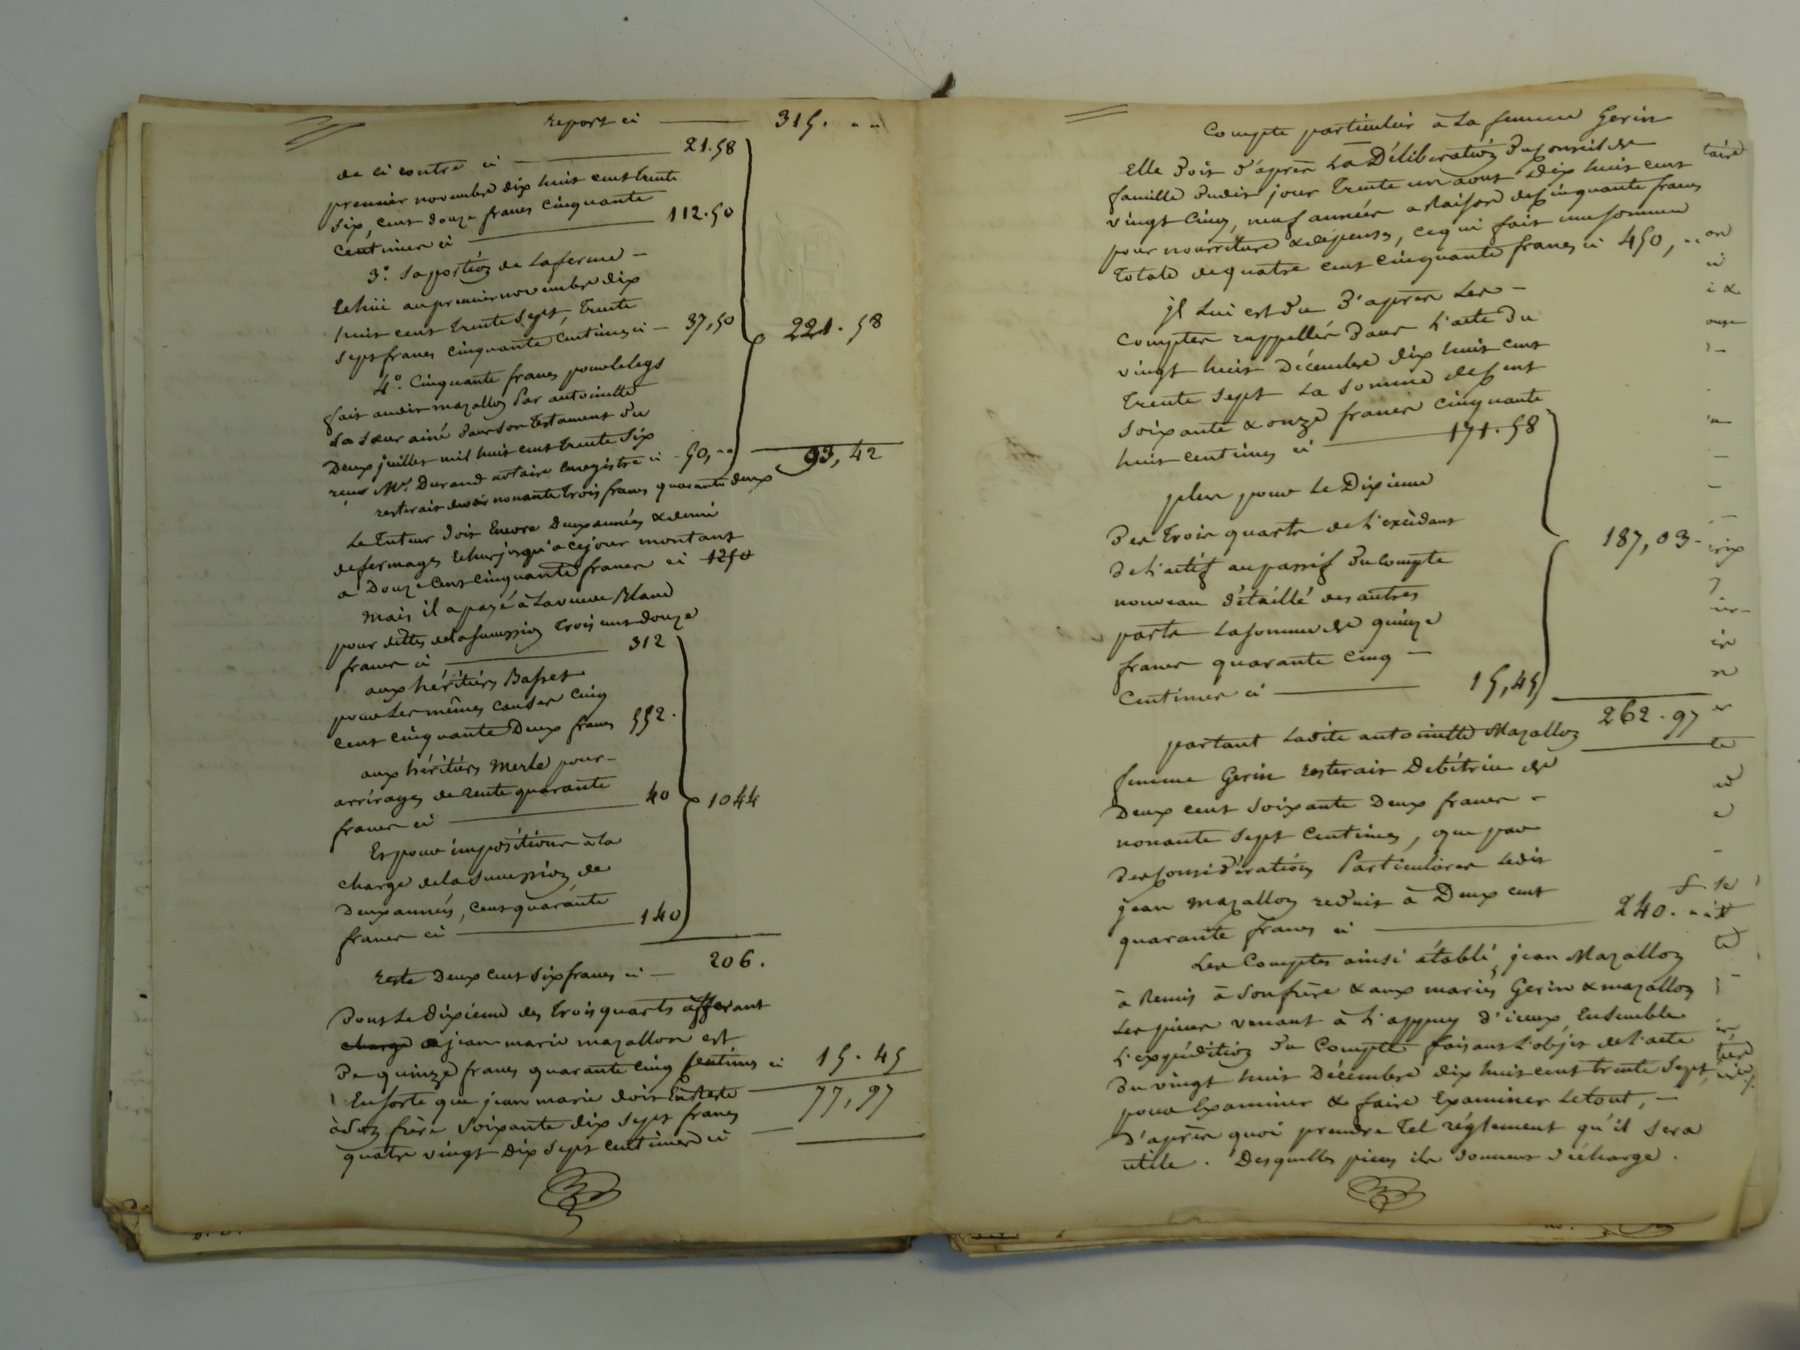 report ci 315. "
de ci contre ci 21.58
premier novembre dix huit cent trente
six, cent douze francs cinquante
centimes ci 112.50
3.° Sa portion de la ferme
échüe au premier novembre dix
huit cent trente sept, trente
sept francs cinquante centimes ci 37,50
221.58
4°. Cinquante francs pour le legs
fait audit mazallon par antoinette
sa sœur ainé dans son testament du
Deux juillet mil huit cent trente six
reçu Me. Durand notaire enregistré ci 50, "
93,42
resterait devoir nonante trois francs quarante deux
Le Tuteur doit Encore Deux années & demi
de fermages échus jusqu'à ce jour montant
a Douze cent cinquante francs ci 1250
Mais il a payé à la veuve Blanc
pour dettes de la succession trois cent douze
francs ci 312
aux héritiers Basset
pour les mêmes causes cinq
cent cinquante Deux francs 552.
aux héritiers Merle pour
arrérages de rente quarante
francs ci 40
1044
Et pour impositions à la
charge de la succession de
Deux années, cent quarante
francs ci 140
reste Deux cent six francs ci 206.
Dont le dixieme des trois quarts afferant
charge a jean marie mazallon est
De quinze francs quarante cinq centimes ci 15.45
En sorte que jean marie doit En reste
à son frère Soixante dix sept francs
quatre vingt Dix Sept centimes ci 77,97
Compte particulier à la femme Gerin
Elle Doit D'après La Délibération Du conseil de
famille Dudit jour trente un aout Dix huit cent
vingt Cinq, neuf années a Raison de cinquante francs
pour nourriture & dépenses, ce qui fait une somme
totale de quatre cent cinquante francs ci 450, "
il Lui est Du D'après Les
Comptes rappellés Dans L'acte du
vingt huit Décembre dix huit cent
trente sept La Somme de cent
Soixante & onze francs cinquante
huit centimes ci 171.58
plus pour Le Dixieme
Des trois quarts de L'excédant
de L'actif au passif Du compte
nouveau détaillé des autres
parts La somme de quinze
francs quarante cinq
Centimes ci 15,45
187,03
262.97
partant Ladite antoinette Mazallon
femme Gerin resterait Débitrice de
Deux cent Soixante Deux francs
nonante Sept Centimes, que par
Des considérations Particulières Ledit
jean Mazallon reduit à Deux cent
quarante francs ci 240. "
Les Comptes ainsi établi, jean Mazallon
à Remis à Son frère & aux mariés Gerin & mazallon
Les pieces venant à L'appuy D'iceux Ensemble
L'expédition Du Compte faisant L'objet de L'acte
Du vingt huit Décembre dix huit cent trente Sept
pour Examiner & faire Examiner Le tout,
D'après quoi prendre tel réglement qu'il Sera
utile. Desquelles pieces ils donnent décharge.